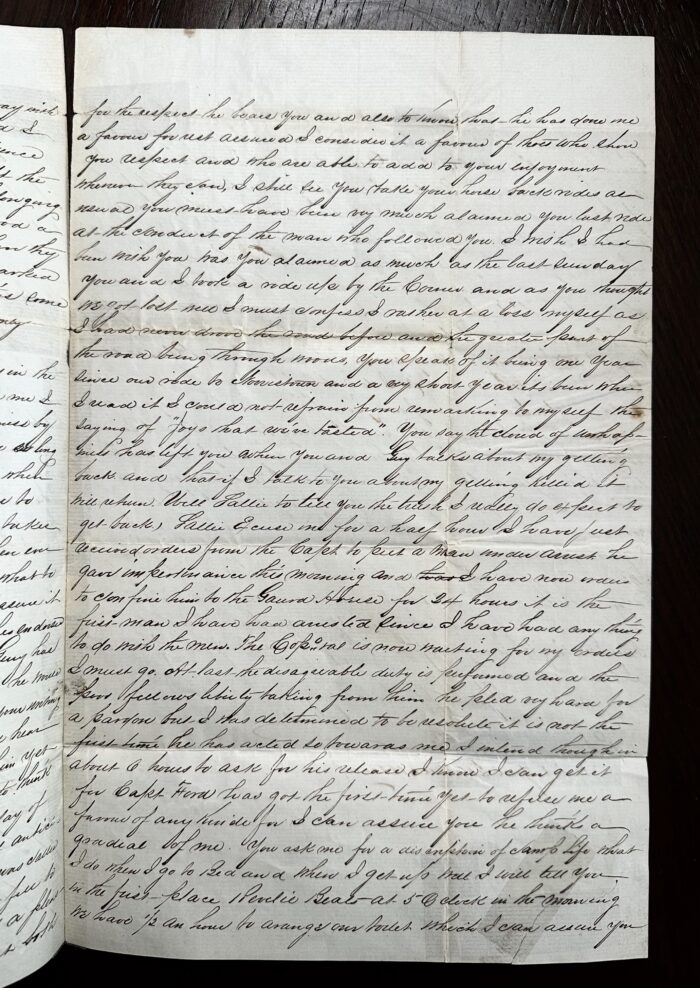 for the respect he bears you and also to know that he has done me
a favour for rest assured I consider it a favour of thoes who show
you respect and who are able to add to your enjoyment
whenever they can, I still see you take your horse back rides as
usual you must have been very much alarmed you last ride
at the conduct of the man who followed you. I wish I had
been with you was you alarmed as much as the last Sunday
you and I took a ride up by the Corner and as you thought
we got lost well I must confess I rather at a loss myself as
I had never drove the road before and the greater part of
the road being through woods, You speak of it being one Year
since our ride to and a very short Year its been when
I read it I could not refrain from remarking to myself the
saying of "Joys that we've tasted". You say the cloud of unhap-
iness has left you when you and talks about my getting
back and that if I talk to you about my getting killed it
will return. Well Sallie to tell you the truth I really do expect to
get back, Sallie Excuse me for a half hour I have just
received orders from the Capt to put a man under arrest he
gave impertinance this morning and I have now orders
to confine him to the Gaurd House for 24 hours it is the
first man I have had arrested since I have had any thing
to do with the men. The Corporal is now waiting for my orders
I must go. At last the disagreable duty is performed and the
poor fellows liberty taking from him he pled very hard for
a pardon but I was determined to be resolute it is not the
first time he has acted so towards me I intend though in
about 6 hours to ask for his release I know I can get it
for Capt Ford has got the first time yet to refuse me a
favour of any kinde for I can assure you he thinks a
gradeal of me. You ask me for a discription of Camp Life what
I do when I go to Bed and when I get up well I will tell you
in the first place Revilie Beats at 5 O clock in the morning
we have 1/2 an hour to arange our toilet which I can assure you